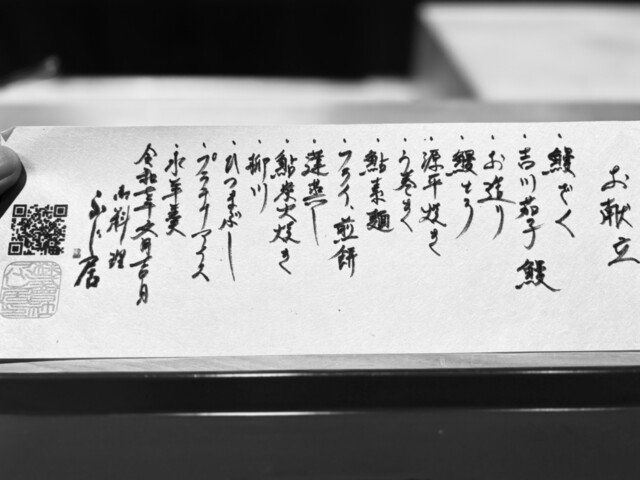 お献立
・鰻ざく
・吉川茄子 鰻
・お造り
・鰻とろ
・源平焼き
・う巻き
・鮎素麺
・フライ、煎餅
・蓮蒸し
・鮎柴火焼き
・柳川
・ひつまぶし
・プラチナアイス
・水羊羹
令和七年六月吉日
御料理
ふじ居